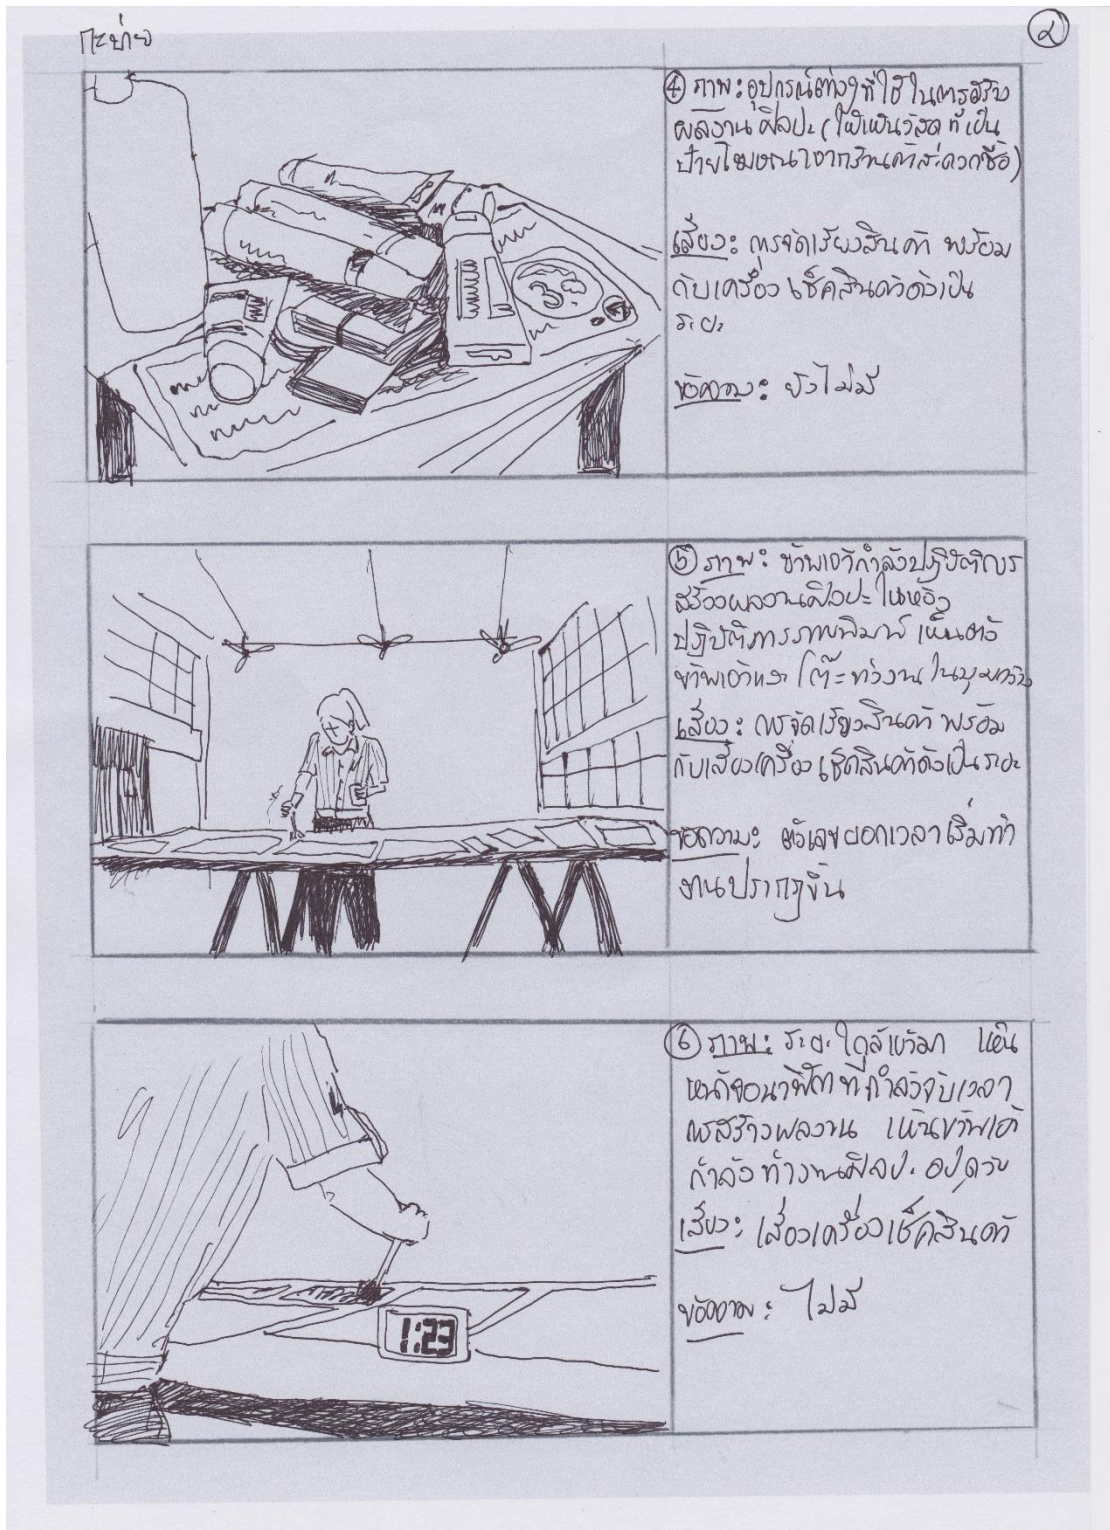 กะบ่าย
๒
④ ภาพ: อุปกรณ์ต่างๆที่ใช้ในการสร้าง
ผลงานศิลปะ (ให้เห็นวัสดุที่เป็น
ป้ายโฆษณาจากร้านค้าสะดวกซื้อ)
เสียง: การจัดเรียงสินค้า พร้อม
กับเครื่องเช็คสินค้าดังเป็น
ระยะ
ข้อความ: ยังไม่มี
⑤ ภาพ: ข้าพเจ้ากำลังปฏิบัติการ
สร้างผลงานศิลปะในห้อง
ปฏิบัติการภาพพิมพ์ เห็นตัว
ข้าพเจ้าและโต๊ะทำงานในมุมกว้าง
เสียง: การจัดเรียงสินค้า พร้อม
กับเสียงเครื่องเช็คสินค้าดังเป็นระยะ
ข้อความ: ตัวเลขบอกเวลาเริ่มทำ
งานปรากฏขึ้น
⑥ ภาพ: ระยะใกล้เข้ามา เห็น
หน้าจอนาฬิกาที่กำลังจับเวลา
การสร้างผลงาน เห็นข้าพเจ้า
กำลังทำงานศิลปะอยู่ด้วย
เสียง: เสียงเครื่องเช็คสินค้า
1:23
ข้อความ: ไม่มี